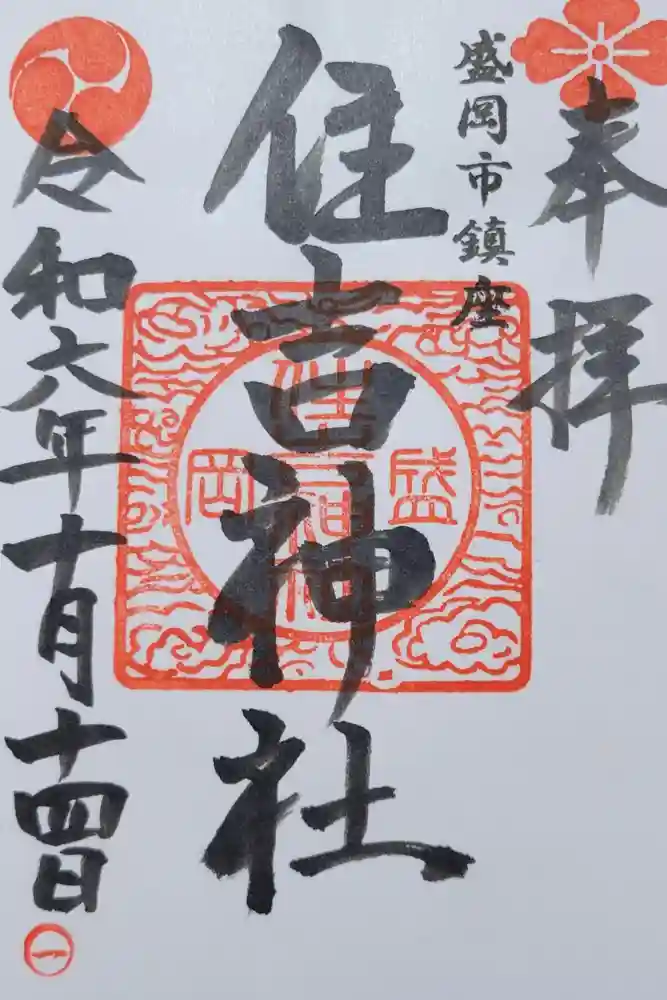 奉拝
盛岡市鎮座
住吉神社
盛
岡
令和六年十月十四日
一